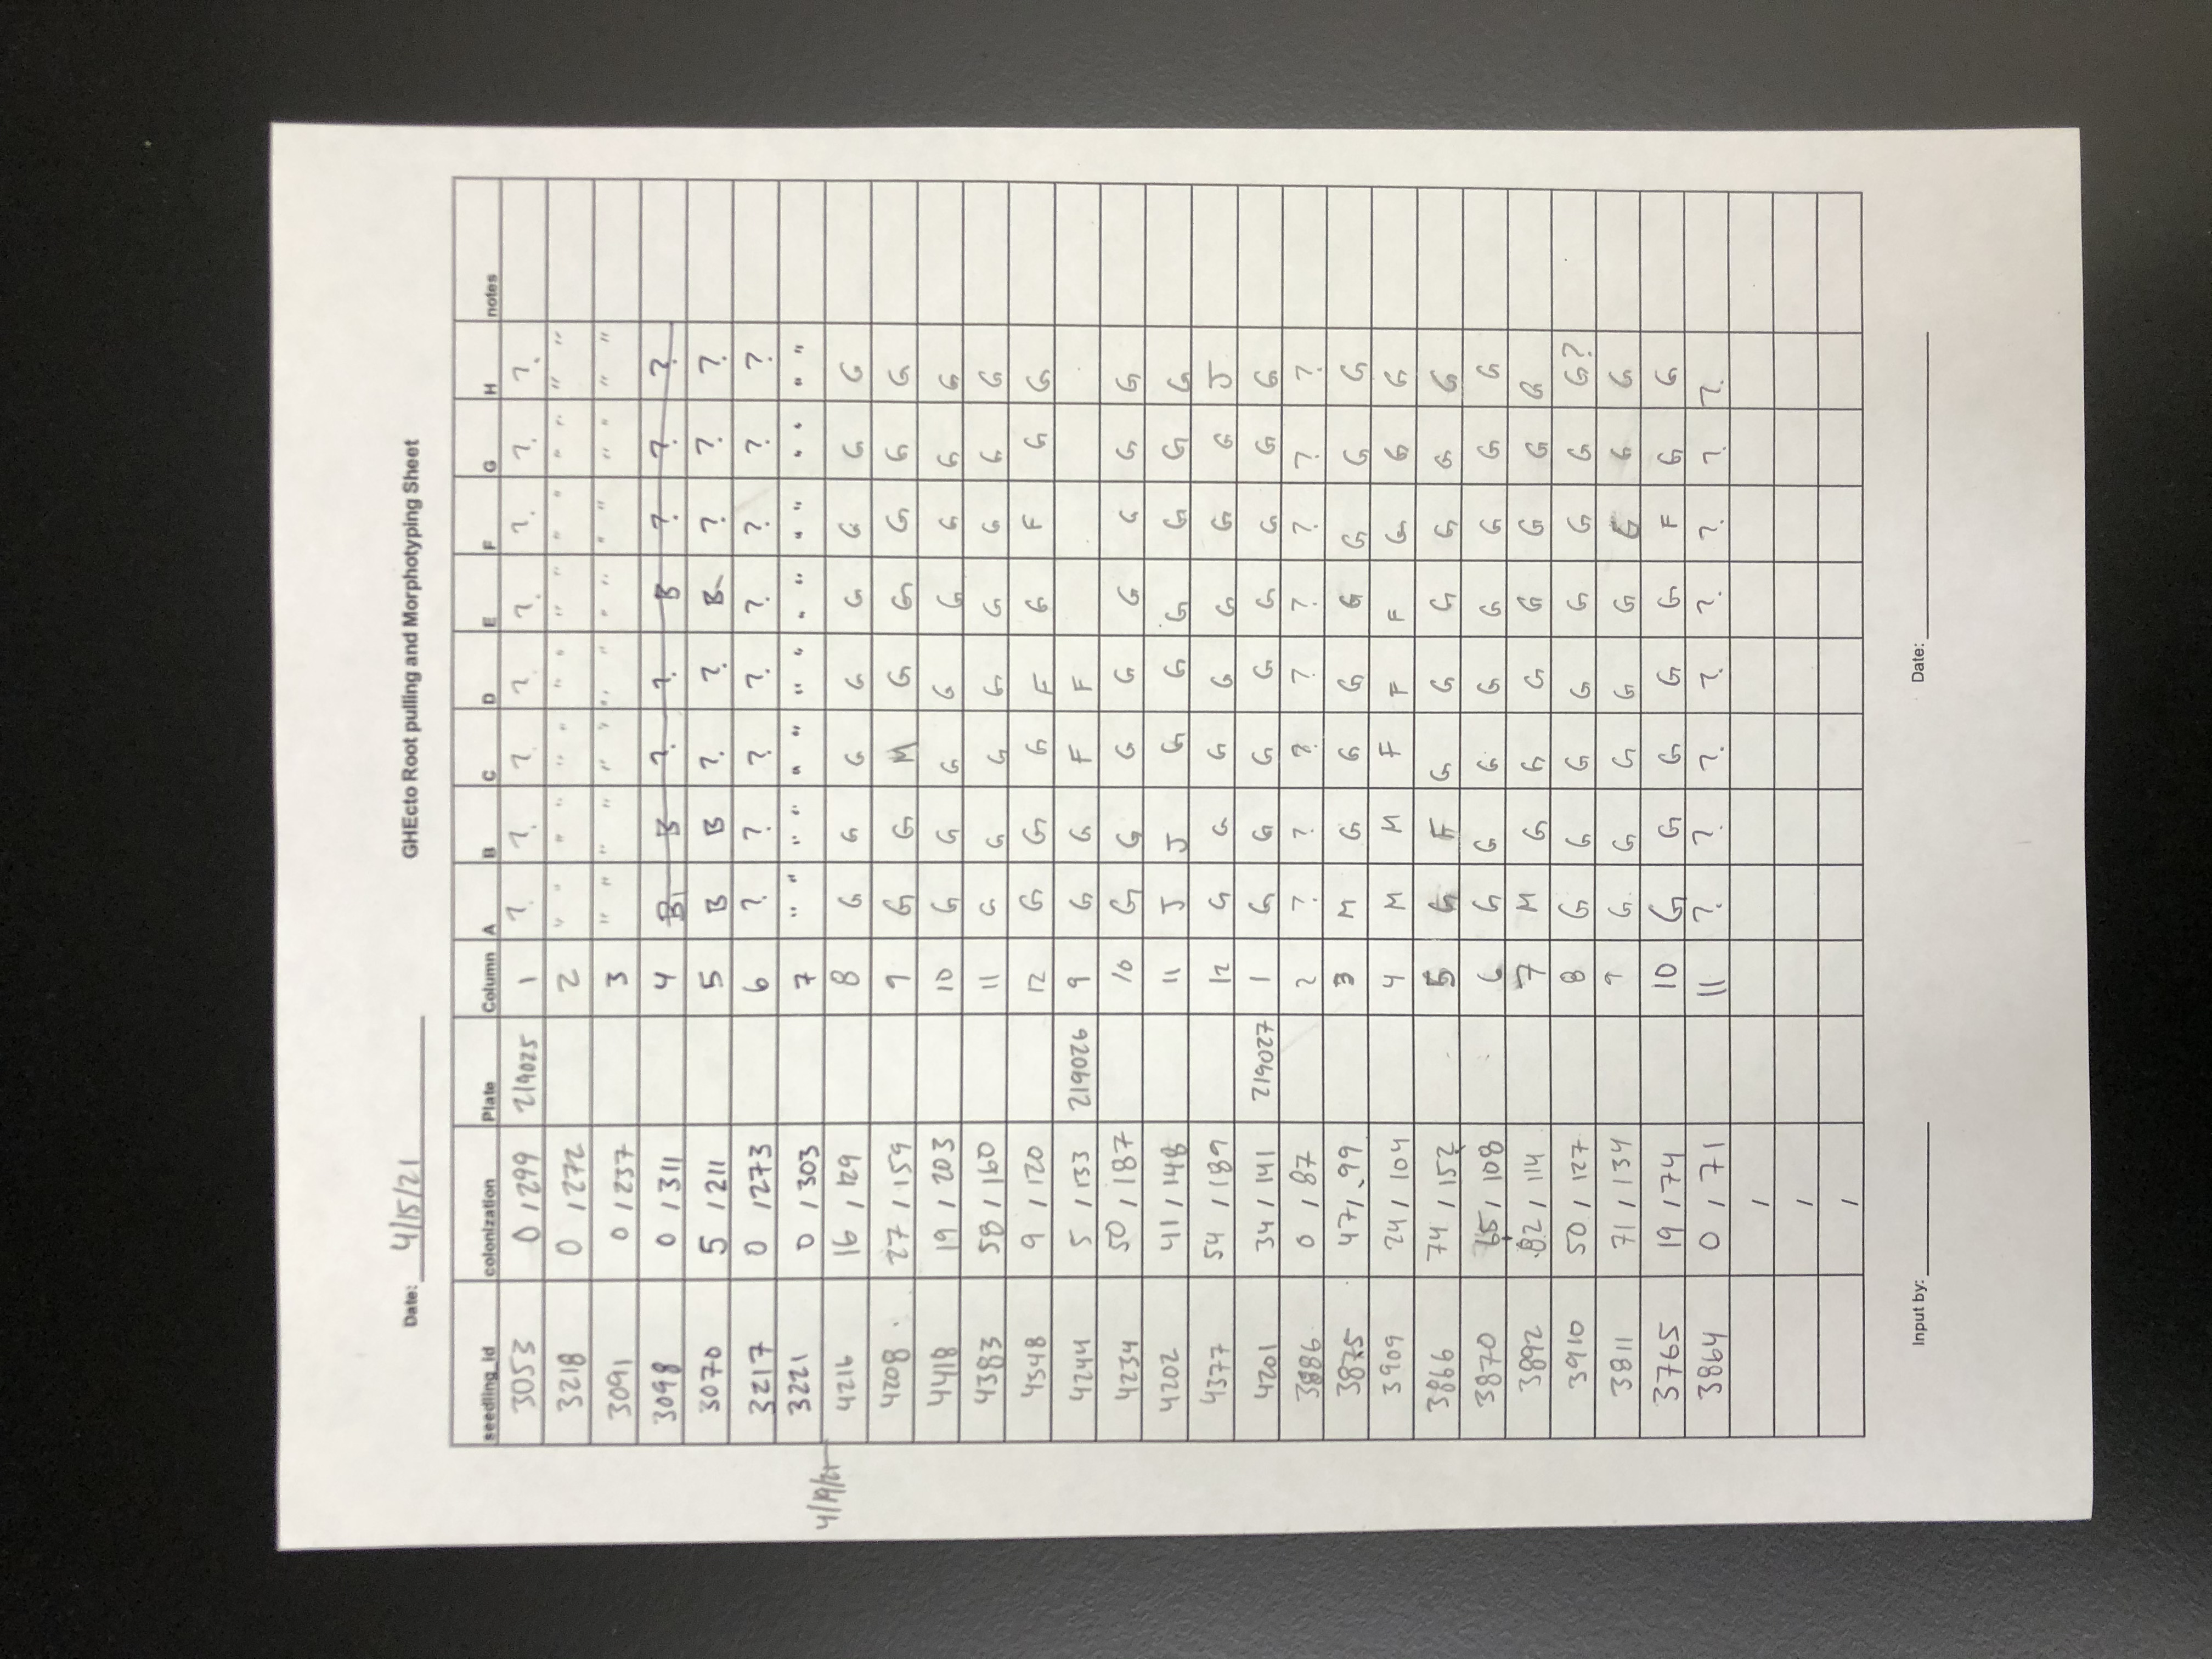 Date: 4/15/21 GHEcto Root pulling and Morphotyping Sheet
seedling_id colonization Plate Column A B C D E F G H notes
3053 0 / 299 219025 1 ? ? ? ? ? ? ? ?
3218 0 / 272 2 " " " " " " " " " " " " " " " "
3091 0 / 237 3 " " " " " " " " " " " " " " " "
3098 0 / 311 4 B B ? ? B ? ? ?
3070 5 / 211 5 B B ? ? B ? ? ?
3217 0 / 273 6 ? ? ? ? ? ? ? ?
3221 0 / 303 7 " " " " " " " " " " " " " " " "
4/19/21
4216 16 / 129 8 G G G G G G G G
4208 27 / 159 9 G G M G G G G G
4418 19 / 203 10 G G G G G G G G
4383 58 / 160 11 G G G G G G G G
4548 9 / 120 12 G G G F G F G G
4244 5 / 133 219026 9 G G F F
4234 50 / 187 10 G G G G G G G G
4202 41 / 148 11 J J G G G G G G
4377 54 / 189 12 G G G G G G G J
4201 34 / 141 219027 1 G G G G G G G G
3886 0 / 87 2 ? ? ? ? ? ? ? ?
3875 47 / 99 3 M G G G G G G G
3909 24 / 104 4 M M F F F G G G
3866 74 / 152 5 G F G G G G G G
3870 65 / 108 6 G G G G G G G G
3892 82 / 114 7 M G G G G G G G
3910 50 / 127 8 G G G G G G G G?
3811 71 / 134 9 G G G G G G G G
3765 19 / 74 10 G G G G G F G G
3864 0 / 71 11 ? ? ? ? ? ? ? ?
/
/
/
Input by: Date: